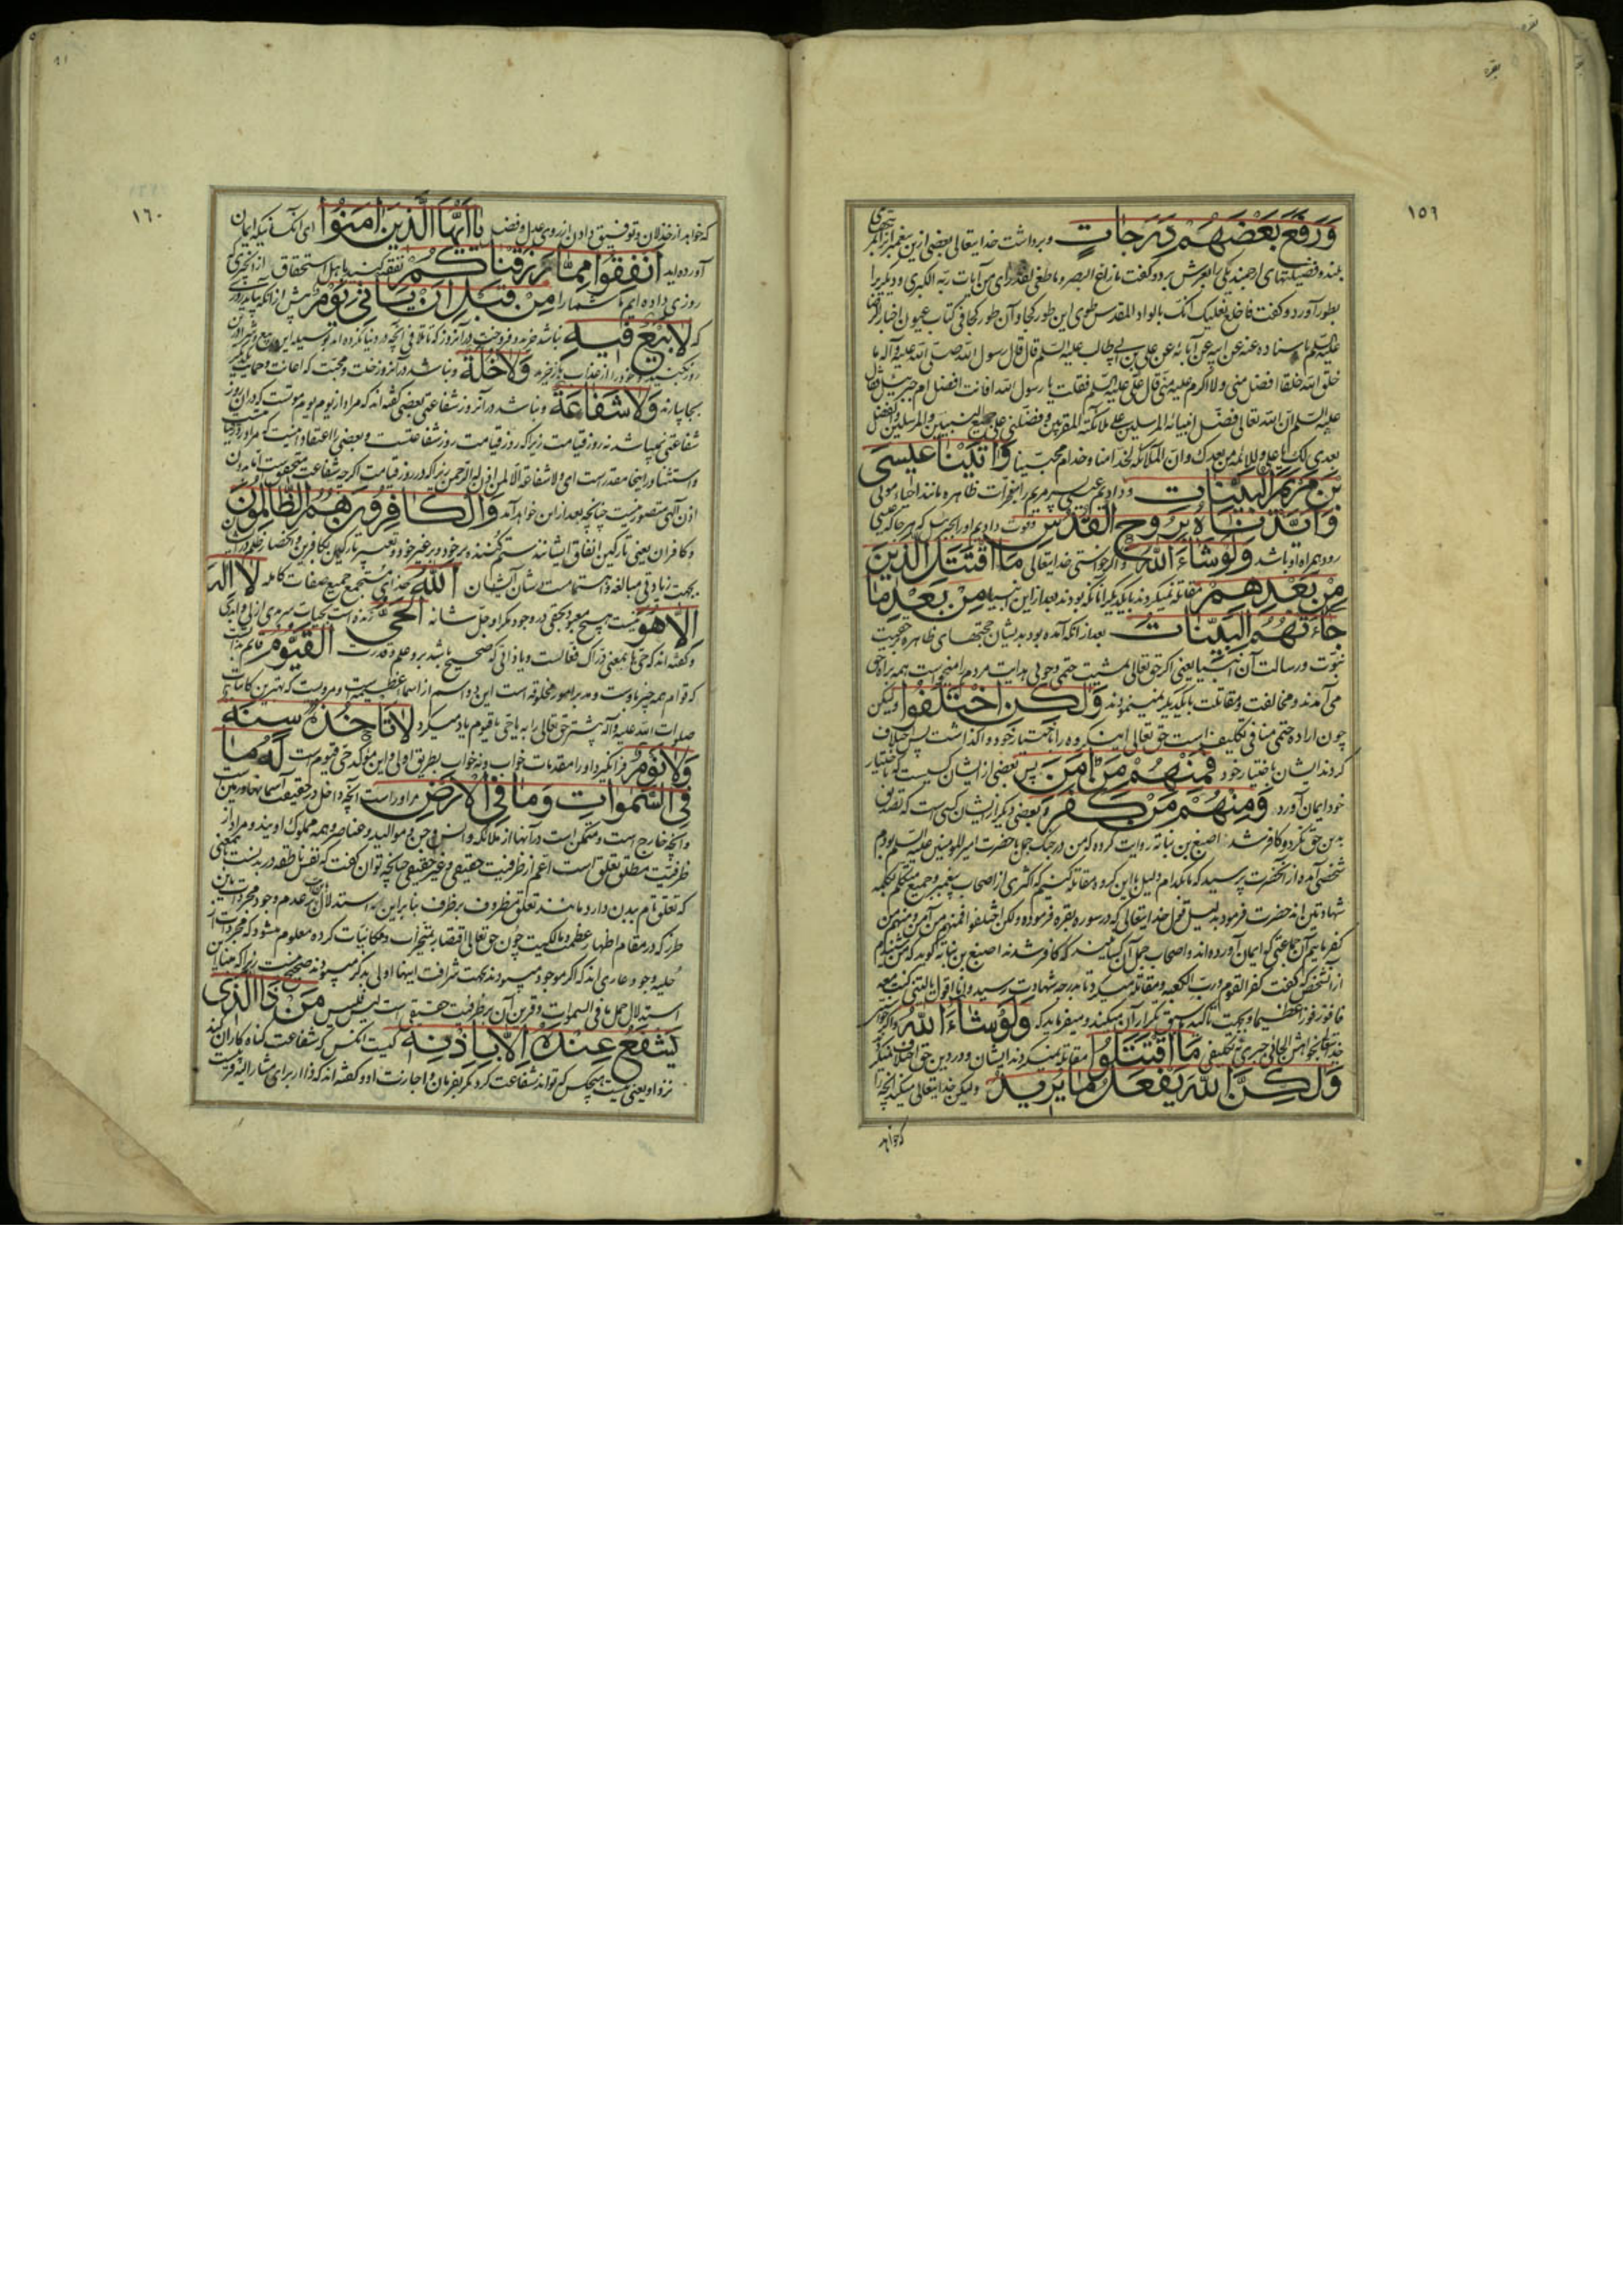 ١٥٩
وَرَفَعَ بَعْضَهُمْ دَرَجَاتٍ وبرداشت خدایتعالی بعضی ازین پیغمبرانرا
بلند و فضیلتهای ارجمند یکی را بعرش برد و گفت مازاغ البصر وما طغی لقد رای من آیات ربه الکبری ودیگریرا
بطور آورد و گفت فاخلع نعلیک انک بالواد المقدس طوی این طور کجا وآن طور کجا فی کتاب عیون اخبار الرضا
علیه السلم باسناده عنه عن ابیه عن آبائه عن علی بن ابی طالب علیه السلم قال قال رسول الله صلی الله علیه وآله ما
خلق الله خلقا افضل منی ولا اکرم علیه منی قال علی علیه السلم فقلت یا رسول الله افانت افضل ام جبرئیل فقال
علیه السلم ان الله تعالی فضل انبیائه المرسلین علی ملائکته المقربین وفضلنی علی جمیع النبیین والمرسلین والفضل
بعدی لک یا علی وللائمة من بعدک وان الملائکة لخدامنا وخدام محبینا وَآتَيْنَا عِيسَى
بْنَ مَرْيَمَ الْبَيِّنَاتِ ودادیم عیسی پسر مریم را معجزات ظاهره مانند احیاء موتی
وَأَيَّدْنَاهُ بِرُوحِ الْقُدُسِ وقوت دادیم اورا بجبرئیل که هرجا که عیسی
رود همراه او باشد وَلَوْ شَاءَ اللَّهُ واگر خواستی خدایتعالی مَا اقْتَتَلَ الَّذِينَ
مِنْ بَعْدِهِمْ مقاتله نمیکردند با یکدیگر آنانکه بودند بعد از این انبیا مِنْ بَعْدِ مَا
جَاءَتْهُمُ الْبَيِّنَاتُ بعد از انکه آمده بود بدیشان حجتهای ظاهره بر حقیت
نبوت ورسالت آن انبیا یعنی اگر حق تعالی بمشیت حتمی وجوبی هدایت مردم را میخواست همه براه حق
می آمدند ومخالفت ومقاتلت با یکدیگر نمینمودند وَلَكِنِ اخْتَلَفُوا ولیکن
چون اراده حتمی منافی تکلیف است حق تعالی این گروه را باختیار خود واگذاشت پس اختلاف
کردند ایشان باختیار خود فَمِنْهُمْ مَنْ آمَنَ پس بعضی از ایشان کسیست که باختیار
خود ایمان آورد وَمِنْهُمْ مَنْ كَفَرَ وبعضی دیگر از ایشان کسی است که تصدیق
بدین حق نکرد وکافر شد اصبغ بن نباته روایت کرده که من در جنگ جمل با حضرت امیر المومنین علیه السلم بودم
شخصی آمده از انحضرت پرسید که ما بکدام دلیل با این گروه مقاتله کنیم که اکثری از اصحاب پیغمبر وجمیع متکلم بکلمه
شهادتین اند حضرت فرمود بدلیل قول خدایتعالی که در سوره بقره فرموده ولکن اختلفوا فمنهم من آمن ومنهم من
کفر مائیم آن جماعتی که ایمان آورده اند واصحاب جمل آن کسانیند که کافر شدند اصبغ بن نباته گوید که من شنیدم
از آنشخص که گفت کفر القوم ورب الکعبة ومقاتله میکرد تا بدرجه شهادت رسید وانا اقول یا لیتنی کنت معه
فافوز فوزا عظیما وبجهت تاکید ما سبق تکرار آن میکند ومیفرماید که وَلَوْ شَاءَ اللَّهُ واگر خواستی
خدایتعالی بخواهش الجائی جبری تکلیفی مَا اقْتَتَلُوا مقاتله نمیکردند ایشان ودر دین حق اختلاف نمیکردند
وَلَكِنَّ اللَّهَ يَفْعَلُ مَا يُرِيدُ ولیکن خدایتعالی میکند آنچه را
که خواهد
١٦٠
که خواهد از خذلان وتوفیق دادن از روی عدل وفضل يَا أَيُّهَا الَّذِينَ آمَنُوا ای آنکسانیکه ایمان
آورده اید أَنْفِقُوا مِمَّا رَزَقْنَاكُمْ نفقه کنید باهل استحقاق از انچیزی که
روزی داده ایم ما شمارا مِنْ قَبْلِ أَنْ يَأْتِيَ يَوْمٌ پیش از انکه بیاید روزی
که لَا بَيْعٌ فِيهِ نباشد خرید وفروخت در آنروز که تا تلافی آنچه در دنیا نکرده اید بوسیله این بیع وشرا در آن
روز بکنید وخودرا از عذاب باز خرید وَلَا خُلَّةٌ ونباشد در آنروز خلت ومحبت که اعانت وحمایت یکدیگر
بجا بیارند وَلَا شَفَاعَةٌ ونباشد در آنروز شفاعتی بعضی گفته اند که مراد از یوم یوم موتست که در ان روز
شفاعتی نمیباشد نه روز قیامت زیرا که روز قیامت روز شفاعتست وبعضی را اعتقاد اینست که مراد روز قیامتست
واستثنا در اینجا مقدرست ای ولا شفاعة الا لمن اذن له الرحمن زیرا که در روز قیامت اگرچه شفاعت متحقق است اما بدون
اذن الهی متصور نیست چنانچه بعد از این خواهد آمد وَالْكَافِرُونَ هُمُ الظَّالِمُونَ
وکافران یعنی تارکین انفاق ایشانند ستم کننده بر خود وبر غیر خود وتعبیر تارکین بکافرین وانحصار ظلم در ایشان
بجهت زیادتی مبالغه واهتمامست بشان آن اللَّهُ خدای مستجمع جمیع صفات کامله لَا إِلَهَ
إِلَّا هُوَ نیست هیچ معبود بحقی در وجود مگر او جل شانه الْحَيُّ زنده است بحیات سرمدی ازلی وابدی
وگفته اند که حی بمعنی دراک فعالست ویا ذاتی که صحیح باشد برو علم وقدرت الْقَيُّومُ قائم بذات
که قوام همه چیز باوست ومدبر امور مخلوقه است این دو اسم از اسماء عظیمه است ومرویست که بهترین کائنات
صلوات الله علیه وآله پیشتر حق تعالی را به یا حی یا قیوم یاد میکرد لَا تَأْخُذُهُ سِنَةٌ
وَلَا نَوْمٌ فرا نگیرد اورا مقدمات خواب ونه خواب بطریق اولی واین مؤکد حی قیوم است لَهُ مَا
فِي السَّمَوَاتِ وَمَا فِي الْأَرْضِ مر اوراست آنچه داخل در حقیقت آسمانها وزمین است
وآنچه خارج است ومتمکن است در آنها از ملائکه وانس وجن وموالید وعناصر وهمه مملوک اویند ومراد از
ظرفیت مطلق تعلق است اعم از ظرفیت حقیقی وغیر حقیقی چنانچه توان گفت که نفس ناطقه در بدنست بمعنی
که تعلق تام ببدن دارد مانند تعلق مظروف بظرف بنابراین استدلال بر عدم وجود مجردات باین
طرز که در مقام اظهار عظمت ومالکیت چون حق تعالی اقتصار بمتحیزات ومکانیات کرده معلوم میشود که مجردات از
حلیه وجود عاری اند که اگر موجود میبودند بجهت شرافت اینها اولی بذکر میبودند صحیح نیست زیرا که بنای این
استدلال حمل ما فی السموات وقرین آن بر ظرفیت حقیقی است لیس فلیس مَنْ ذَا الَّذِي
يَشْفَعُ عِنْدَهُ إِلَّا بِإِذْنِهِ کیست آنکس که شفاعت گناه کاران کند
نزد او یعنی نیست هیچکس که تواند شفاعت کرد مگر بفرمان واجازت او وگفته اند که ذا از برای مشار الیه قریب